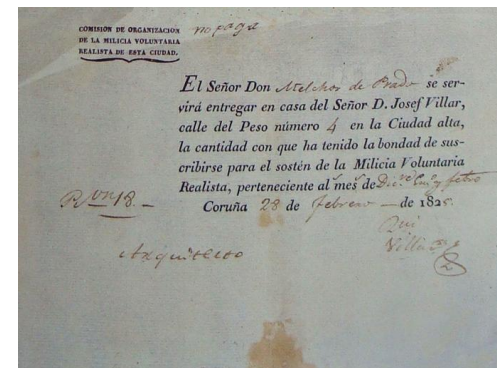 COMISION DE ORGANIZACION
DE LA MILICIA VOLUNTARIA
REALISTA DE ESTA CIUDAD.
no paga
El Señor Don Melchor de Prado se ser-
virá entregar en casa del Señor D. Josef Villar,
calle del Peso número 4 en la Ciudad alta,
la cantidad con que ha tenido la bondad de sus-
cribirse para el sostén de la Milicia Voluntaria
Realista, perteneciente al mes de Dic.e En.o y febro
Coruña 28 de febrero de 1825.
Rvon 18.
Villar
Arquitecto